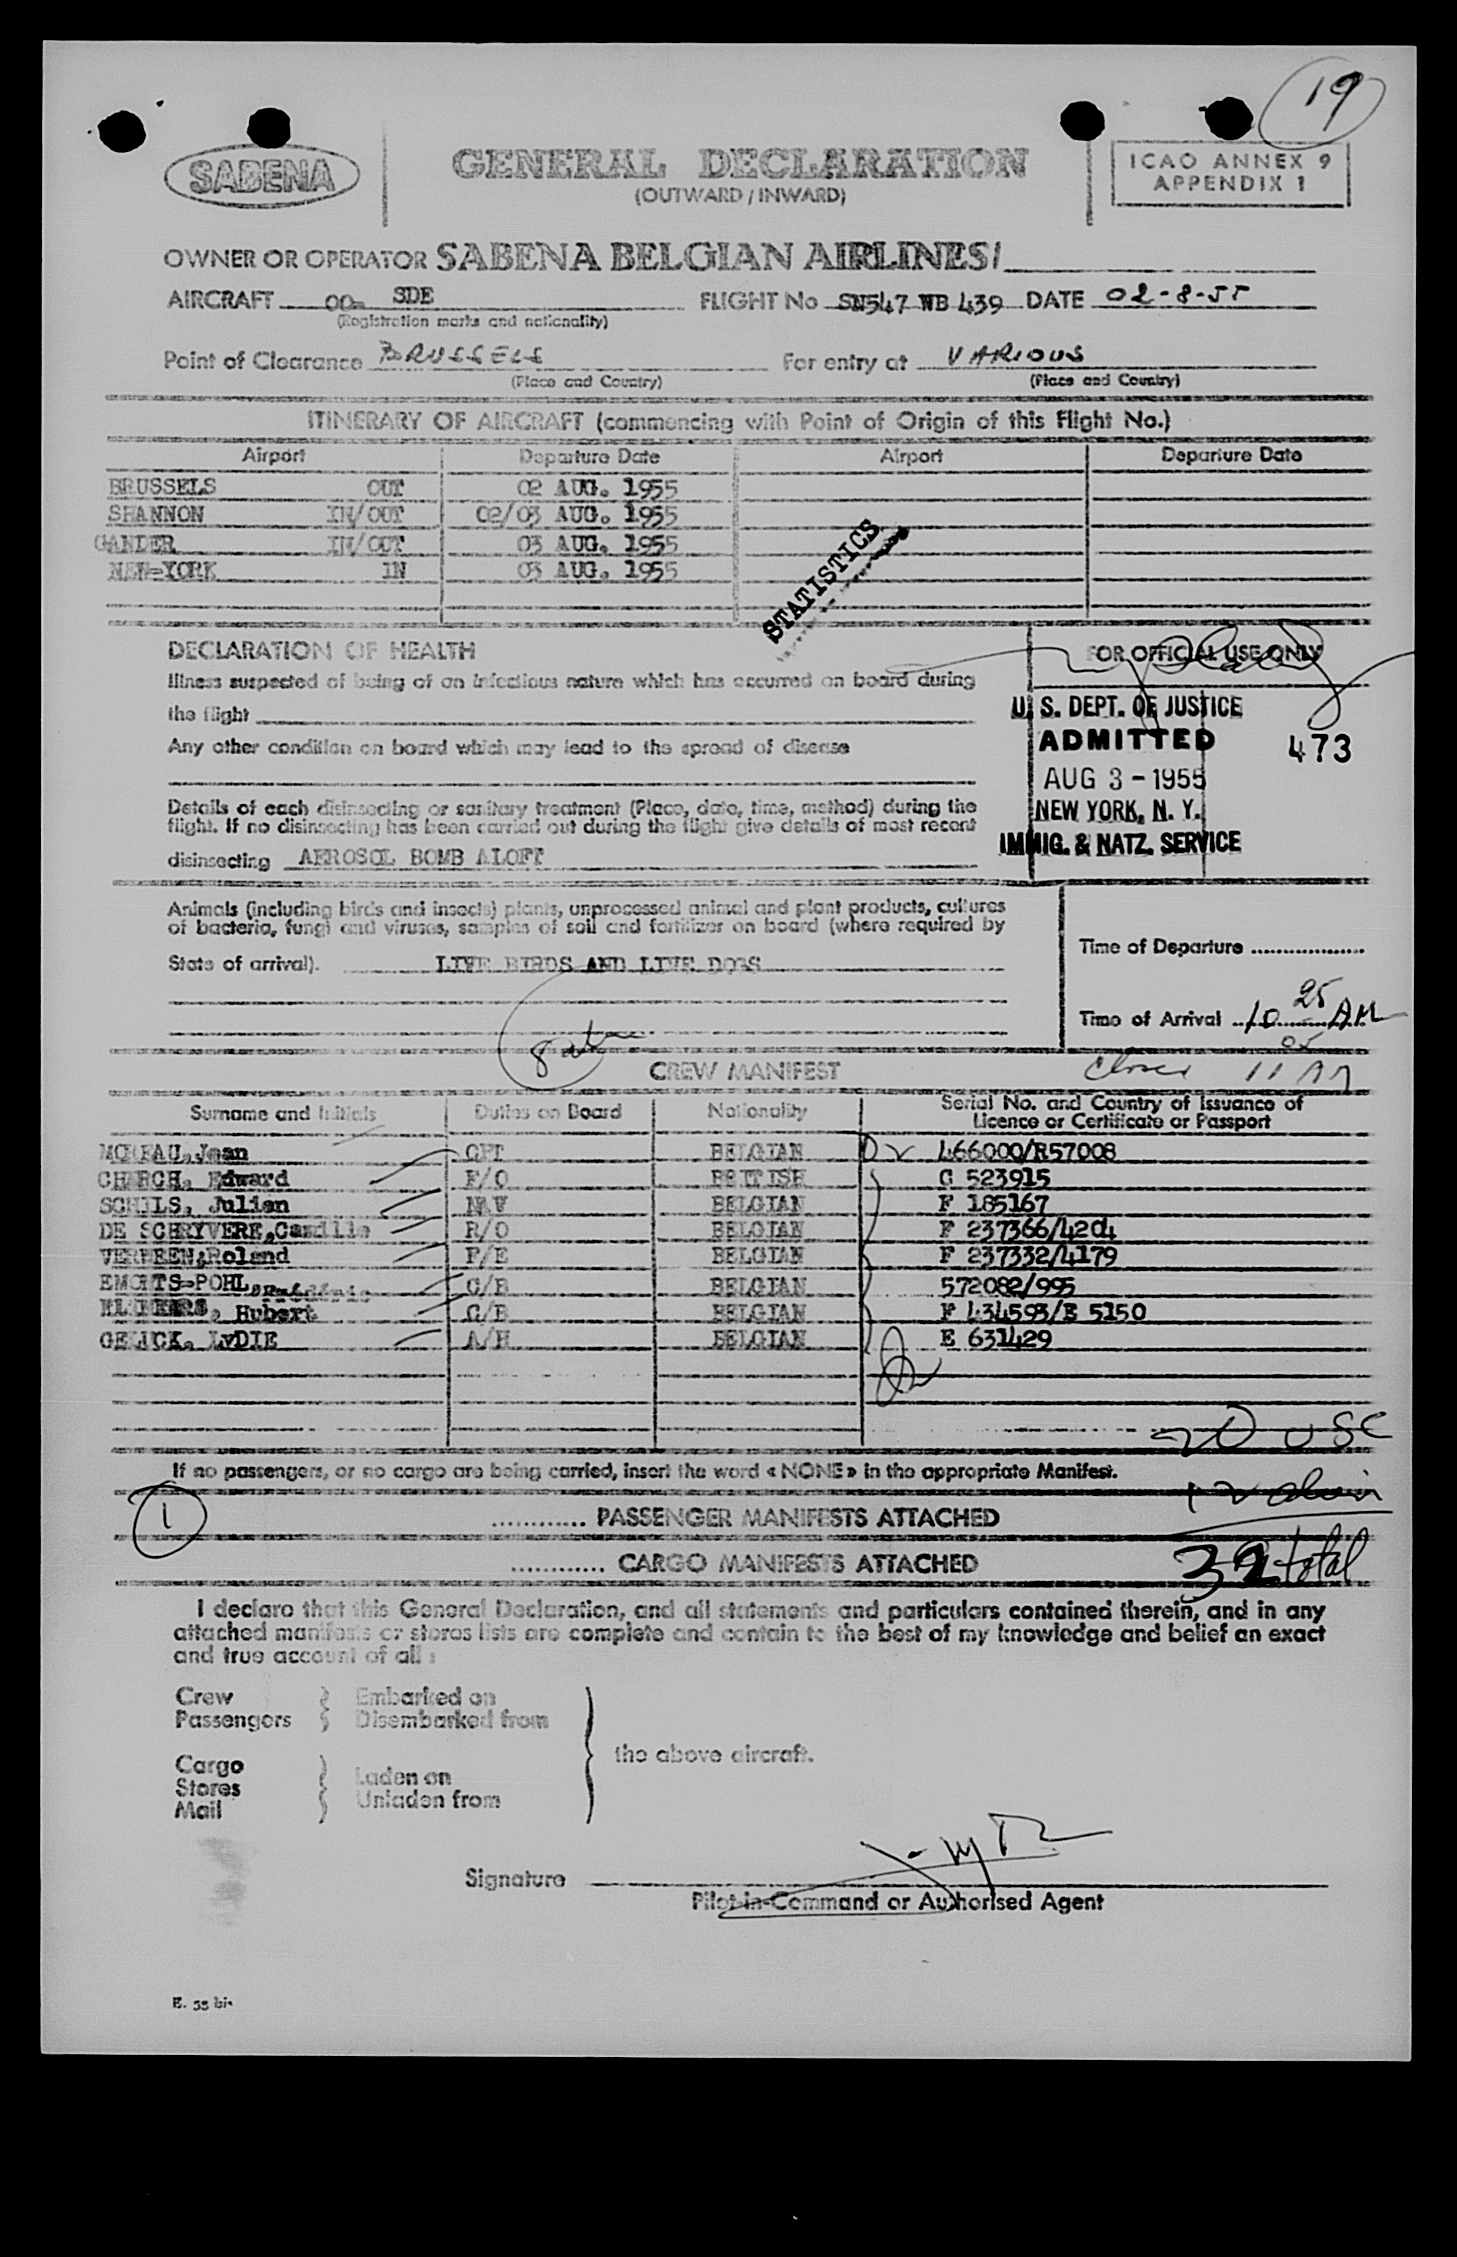 19
SABENA
GENERAL DECLARATION
(OUTWARD / INWARD)
ICAO ANNEX 9
APPENDIX 1
OWNER OR OPERATOR SABENA BELGIAN AIRLINES
AIRCRAFT OO- SDE FLIGHT No SN547 WB 439 DATE 02-8-55
(Registration marks and nationality)
Point of Clearance BRUSSELS For entry at VARIOUS
(Place and Country) (Place and Country)
ITINERARY OF AIRCRAFT (commencing with Point of Origin of this Flight No.)
Airport Departure Date Airport Departure Date
BRUSSELS OUT 02 AUG. 1955
SHANNON IN/OUT 02/03 AUG. 1955
GANDER IN/OUT 03 AUG. 1955
NEW-YORK IN 03 AUG. 1955
STATISTICS
DECLARATION OF HEALTH
FOR OFFICIAL USE ONLY
Illness suspected of being of an infectious nature which has occurred on board during
the flight
Any other condition on board which may lead to the spread of disease
U. S. DEPT. OF JUSTICE
ADMITTED 473
AUG 3 - 1955
NEW YORK, N. Y.
IMMIG. & NATZ. SERVICE
Details of each disinsecting or sanitary treatment (Place, date, time, method) during the
flight. If no disinsecting has been carried out during the flight give details of most recent
disinsecting AEROSOL BOMB ALOFT
Animals (including birds and insects) plants, unprocessed animal and plant products, cultures
of bacteria, fungi and viruses, samples of soil and fertilizer on board (where required by
State of arrival). LIVE BIRDS AND LIVE DOGS
Time of Departure
Time of Arrival 10 25 AM
11 05
CREW MANIFEST
Surname and Initials Duties on Board Nationality Serial No. and Country of Issuance of
Licence or Certificate or Passport
MOREAU, Jean CPT BELGIAN L66000/R57008
Edward F/O BRITISH C 523915
SCHILS, Julien NAV BELGIAN F 185167
DE SCHRYVERE, Camille R/O BELGIAN F 237366/4204
Roland F/E BELGIAN F 237332/4179
C/B BELGIAN 572082/995
Hubert C/B BELGIAN F 434593/E 5150
GELUCK, LyDIE A/H BELGIAN E 631429
20 USC
If no passengers, or no cargo are being carried, insert the word « NONE » in the appropriate Manifest.
12 alien
1
............ PASSENGER MANIFESTS ATTACHED
............ CARGO MANIFESTS ATTACHED
32 total
I declare that this General Declaration, and all statements and particulars contained therein, and in any
attached manifests or stores lists are complete and contain to the best of my knowledge and belief an exact
and true account of all :
Crew
Passengers
Embarked on
Disembarked from
the above aircraft.
Cargo
Stores
Mail
Laden on
Unladen from
Signature
Pilot-in-Command or Authorised Agent
E. 55 bis